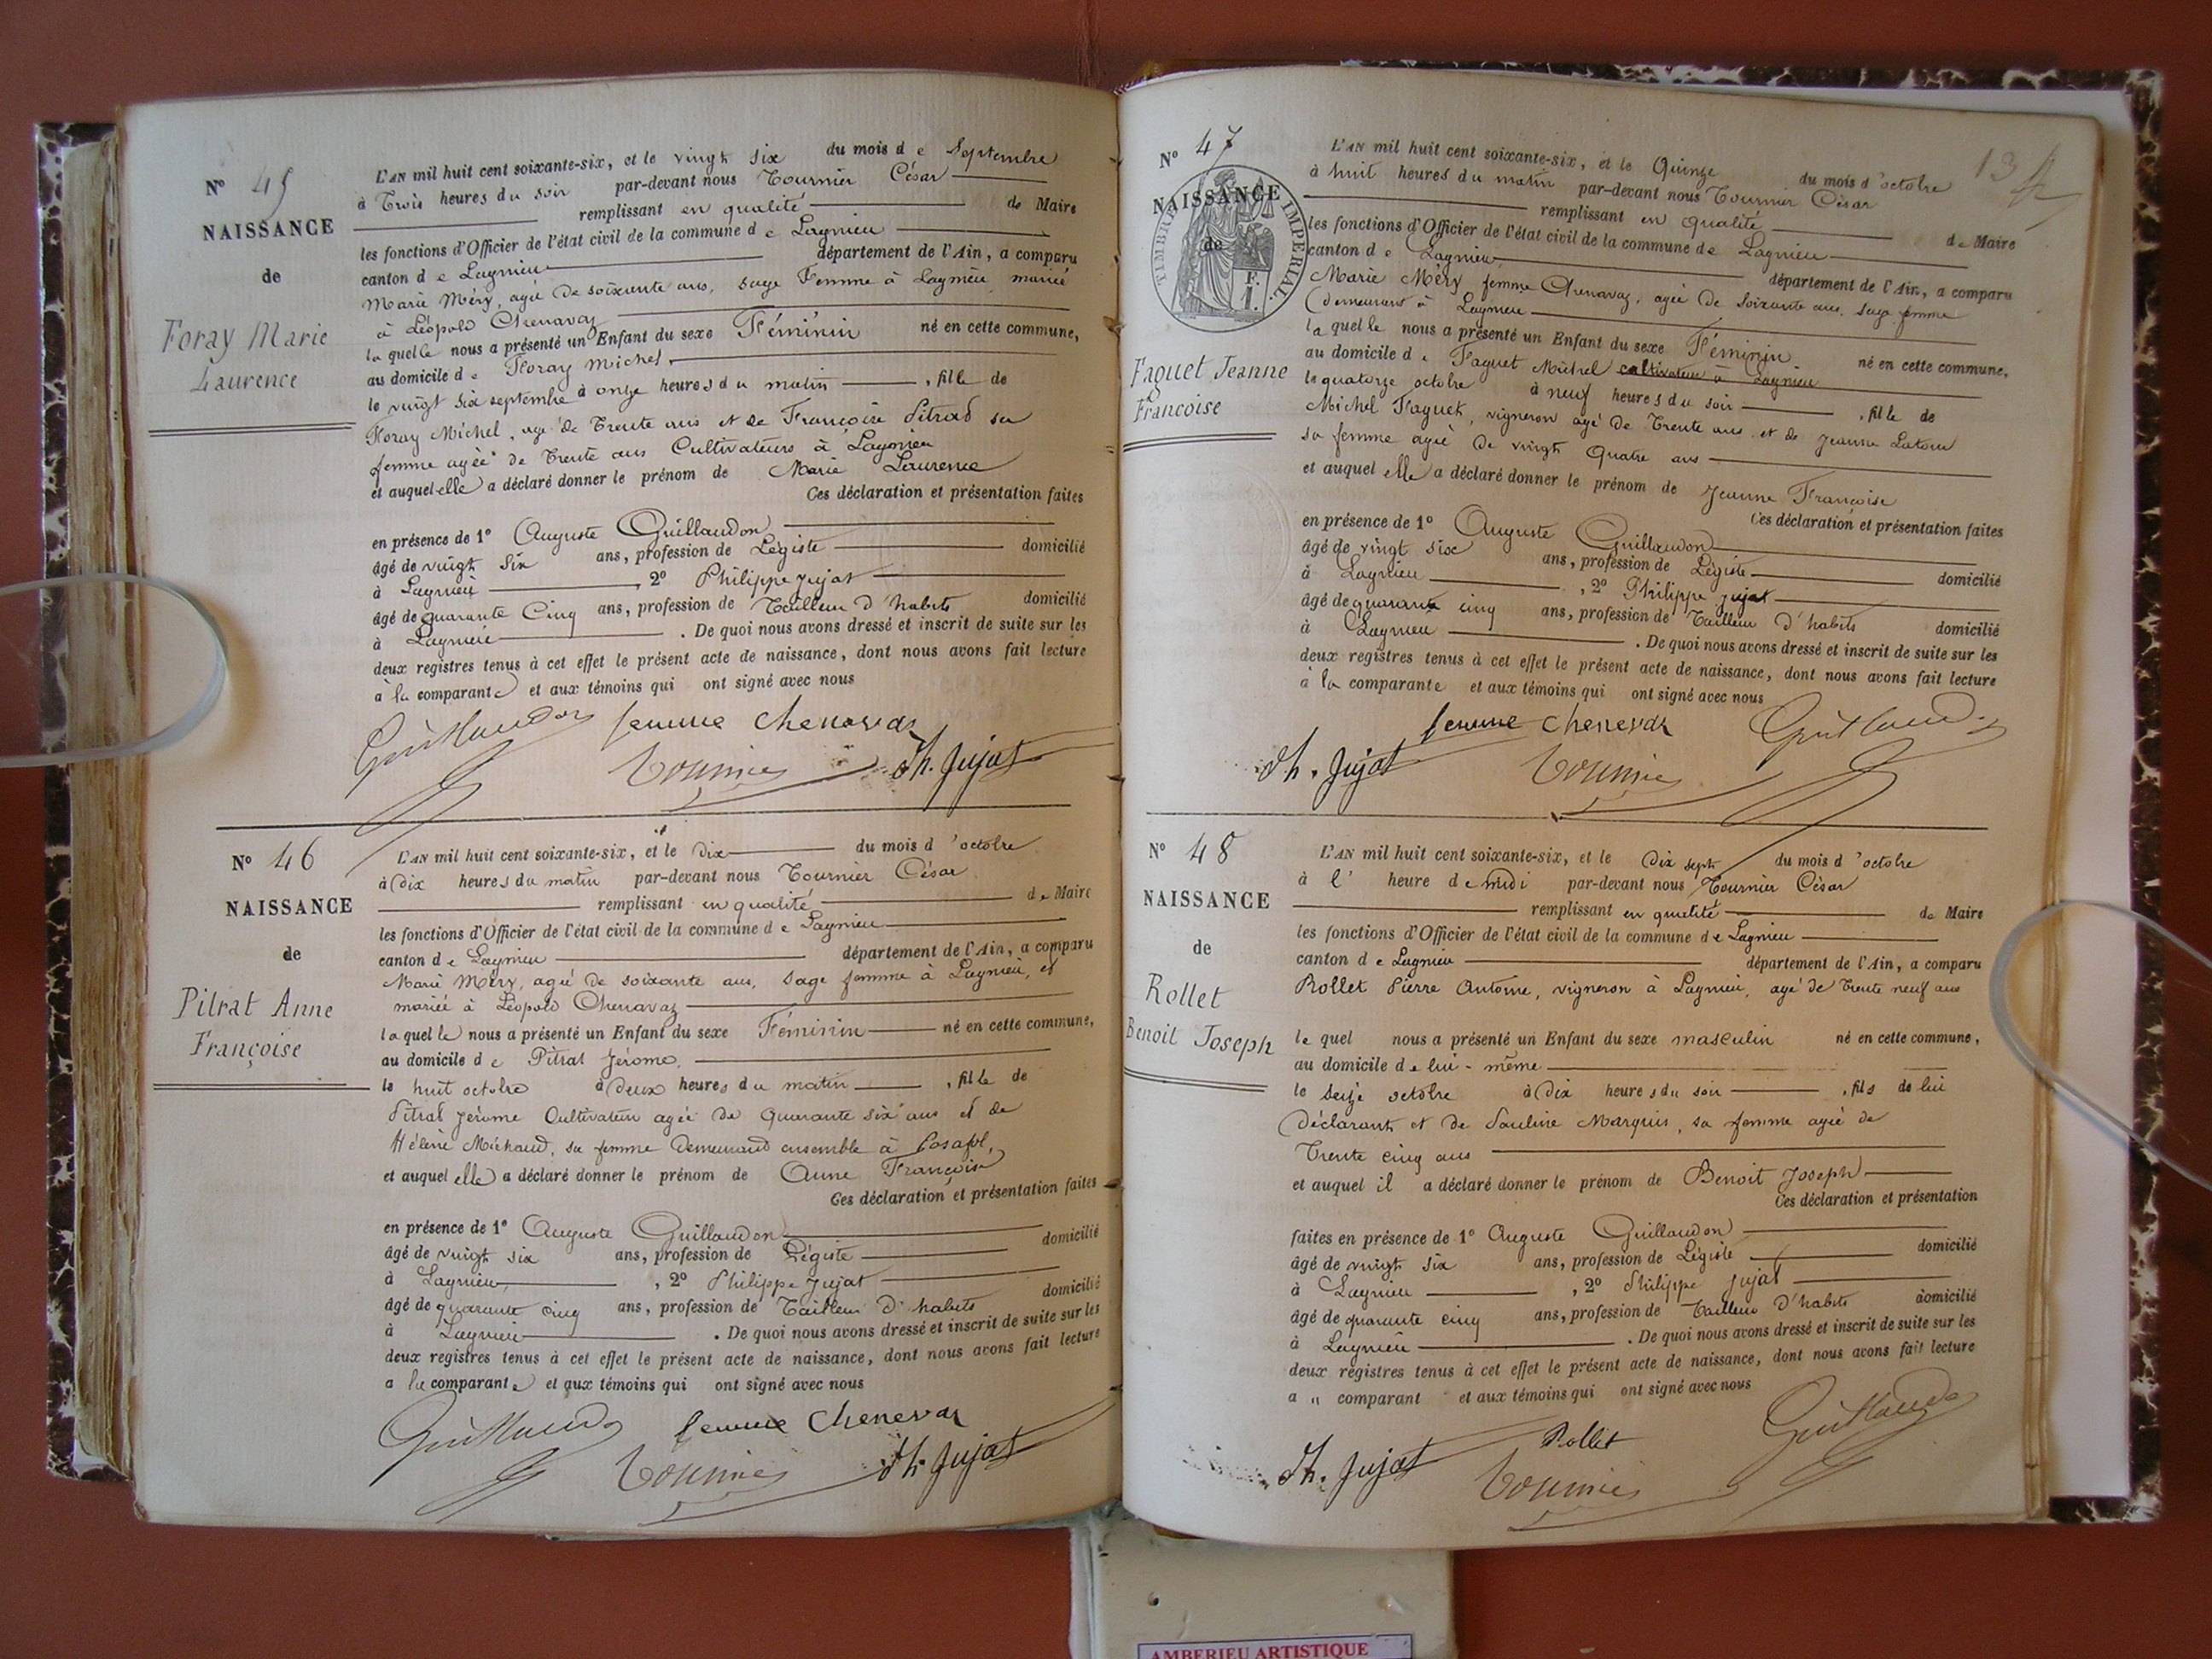 N° 45
NAISSANCE
de
Foray Marie
Laurence
L'AN mil huit cent soixante-six, et le vingt six du mois de Septembre
à Trois heures du soir par-devant nous Tournier César
remplissant en qualité de Maire
les fonctions d'Officier de l'état civil de la commune de Lagnieu
canton de Lagnieu département de l'Ain, a comparu
Marie Méry, agée de soixante ans, sage femme à Lagnieu, mariée
à Léopold Chenavaz
laquelle nous a présenté un Enfant du sexe Féminin né en cette commune,
au domicile de Foray Michel,
le vingt six septembre à onze heures du matin, fille de
Foray Michel, agé de Trente ans et de Françoise Pitrad sa
femme agée de Trente ans Cultivateurs à Lagnieu
et auquel elle a déclaré donner le prénom de Marie Laurence
Ces déclaration et présentation faites
en présence de 1° Auguste Guillaudon
âgé de vingt six ans, profession de Légiste domicilié
à Lagnieu, 2° Philippe Jujat
âgé de quarante Cinq ans, profession de Tailleur d'habits domicilié
à Lagnieu. De quoi nous avons dressé et inscrit de suite sur les
deux registres tenus à cet effet le présent acte de naissance, dont nous avons fait lecture
a la comparante et aux témoins qui ont signé avec nous
Guillaudon femme Chenavas
Tournier Ph. Jujat
N° 46
NAISSANCE
de
Pitrat Anne
Françoise
L'AN mil huit cent soixante-six, et le Dix du mois d'octobre
à Dix heures du matin par-devant nous Tournier César
remplissant en qualité de Maire
les fonctions d'Officier de l'état civil de la commune de Lagnieu
canton de Lagnieu département de l'Ain, a comparu
Marie Méry, agée de soixante ans, sage femme à Lagnieu, et
mariée à Léopold Chenavaz
laquelle nous a présenté un Enfant du sexe Féminin né en cette commune,
au domicile de Pitrat Jérome,
le huit octobre à Deux heures du matin, fille de
Pitrat Jérome Cultivateur agée de Quarante six ans et de
Hélène Michaud, sa femme Demeurand ensemble à Posafol,
et auquel elle a déclaré donner le prénom de Anne Françoise
Ces déclaration et présentation faites
en présence de 1° Auguste Guillaudon
âgé de vingt six ans, profession de Légiste domicilié
à Lagnieu, 2° Philippe Jujat
âgé de quarante cinq ans, profession de Tailleur d'habits domicilié
à Lagnieu. De quoi nous avons dressé et inscrit de suite sur les
deux registres tenus à cet effet le présent acte de naissance, dont nous avons fait lecture
a la comparante et aux témoins qui ont signé avec nous
Guillaudon femme Chenevas
Tournier Ph. Jujat
134
N° 47
NAISSANCE
de
TIMBRE IMPÉRIAL
F.
1.
Faquet Jeanne
Françoise
L'AN mil huit cent soixante-six, et le Quinze du mois d'octobre
à huit heures du matin par-devant nous Tournier César
remplissant en qualité de Maire
les fonctions d'Officier de l'état civil de la commune de Lagnieu
canton de Lagnieu département de l'Ain, a comparu
Marie Méry femme Chenavaz, agée de Soixante ans, sage femme
Demeurant à Lagnieu
laquelle nous a présenté un Enfant du sexe Féminin né en cette commune,
au domicile de Faquet Michel cultivateur à Lagnieu
le quatorze octobre à neuf heures du soir, fille de
Michel Faquet, vigneron agé de Trente ans et de Jeanne Latour
sa femme agée de vingt Quatre ans
et auquel elle a déclaré donner le prénom de Jeanne Françoise
Ces déclaration et présentation faites
en présence de 1° Auguste Guillaudon
âgé de vingt six ans, profession de Légiste domicilié
à Lagnieu, 2° Philippe Jujat
âgé de quarante cinq ans, profession de Tailleur d'habits domicilié
à Lagnieu. De quoi nous avons dressé et inscrit de suite sur les
deux registres tenus à cet effet le présent acte de naissance, dont nous avons fait lecture
a la comparante et aux témoins qui ont signé avec nous
femme Chenevas Guillaudon
Ph. Jujat Tournier
N° 48
NAISSANCE
de
Rollet
Benoit Joseph
L'AN mil huit cent soixante-six, et le Dix sept du mois d'octobre
à l'heure de midi par-devant nous Tournier César
remplissant en qualité de Maire
les fonctions d'Officier de l'état civil de la commune de Lagnieu
canton de Lagnieu département de l'Ain, a comparu
Rollet Pierre Antoine, vigneron à Lagnieu, agé de Trente neuf ans
lequel nous a présenté un Enfant du sexe masculin né en cette commune,
au domicile de lui-même
le seize octobre à Dix heures du soir, fils de lui
Déclarant et de Pauline Marquis, sa femme agée de
Trente cinq ans
et auquel il a déclaré donner le prénom de Benoit Joseph
Ces déclaration et présentation
faites en présence de 1° Auguste Guillaudon
âgé de vingt six ans, profession de Légiste domicilié
à Lagnieu, 2° Philippe Jujat
âgé de quarante cinq ans, profession de Tailleur d'habits domicilié
à Lagnieu. De quoi nous avons dressé et inscrit de suite sur les
deux registres tenus à cet effet le présent acte de naissance, dont nous avons fait lecture
a " comparant et aux témoins qui ont signé avec nous
Rollet Guillaudon
Ph. Jujat Tournier
AMBERIEU ARTISTIQUE